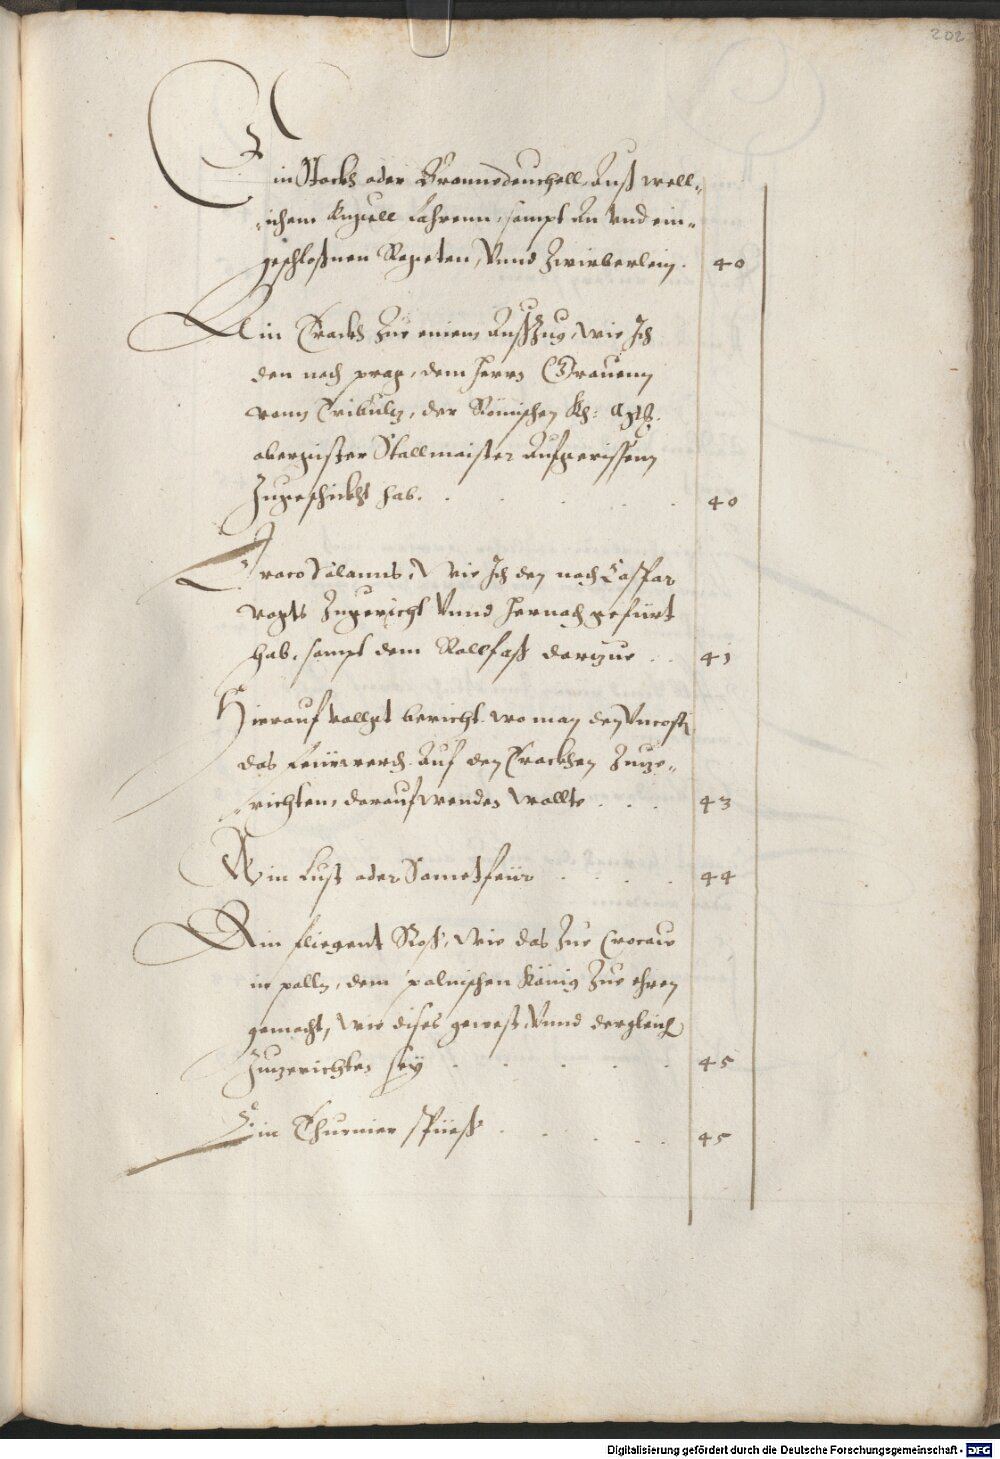 202
Ein Stockh oder Bronndeuchell, Auß well-
ichem kugell fahrenn, sampt An vnd ein-
geschloßnen Rageten, Vnnd Zwirberlein. 40
Ain Trackh Zue einem Aufzug, wie Ich
den nach prag, dem herrn Grauenn
vonn Tribultz, der Römischen Kh: Mtt:
obergister Stallmaister Aufgerissenn
Zugeschickht hab. . . . . 40
Draco Volanns, Wie Ich den nach Caspar
vogts Zugericht Vnnd hernach gefürt
hab, sampt dem Rollfaß darzue . . 41
Hierauf vollgt bericht wo man den Vncosten
das feürwerch Auf den Trackhen Zuzu-
richten, darauf wenden wollte . . . 43
Ain Lust oder Sometfeür . . . . 44
Ain fliegent Roß, Wie das Zue Crocaw
in polln, dem polnischen König Zue ehren
gemacht, Wie dises gewest, Vnnd dergleich
Zuzerichten sey . . . . . 45
Ein Thurnier Spüeß . . . . . 45
Digitalisierung gefördert durch die Deutsche Forschungsgemeinschaft - DFG